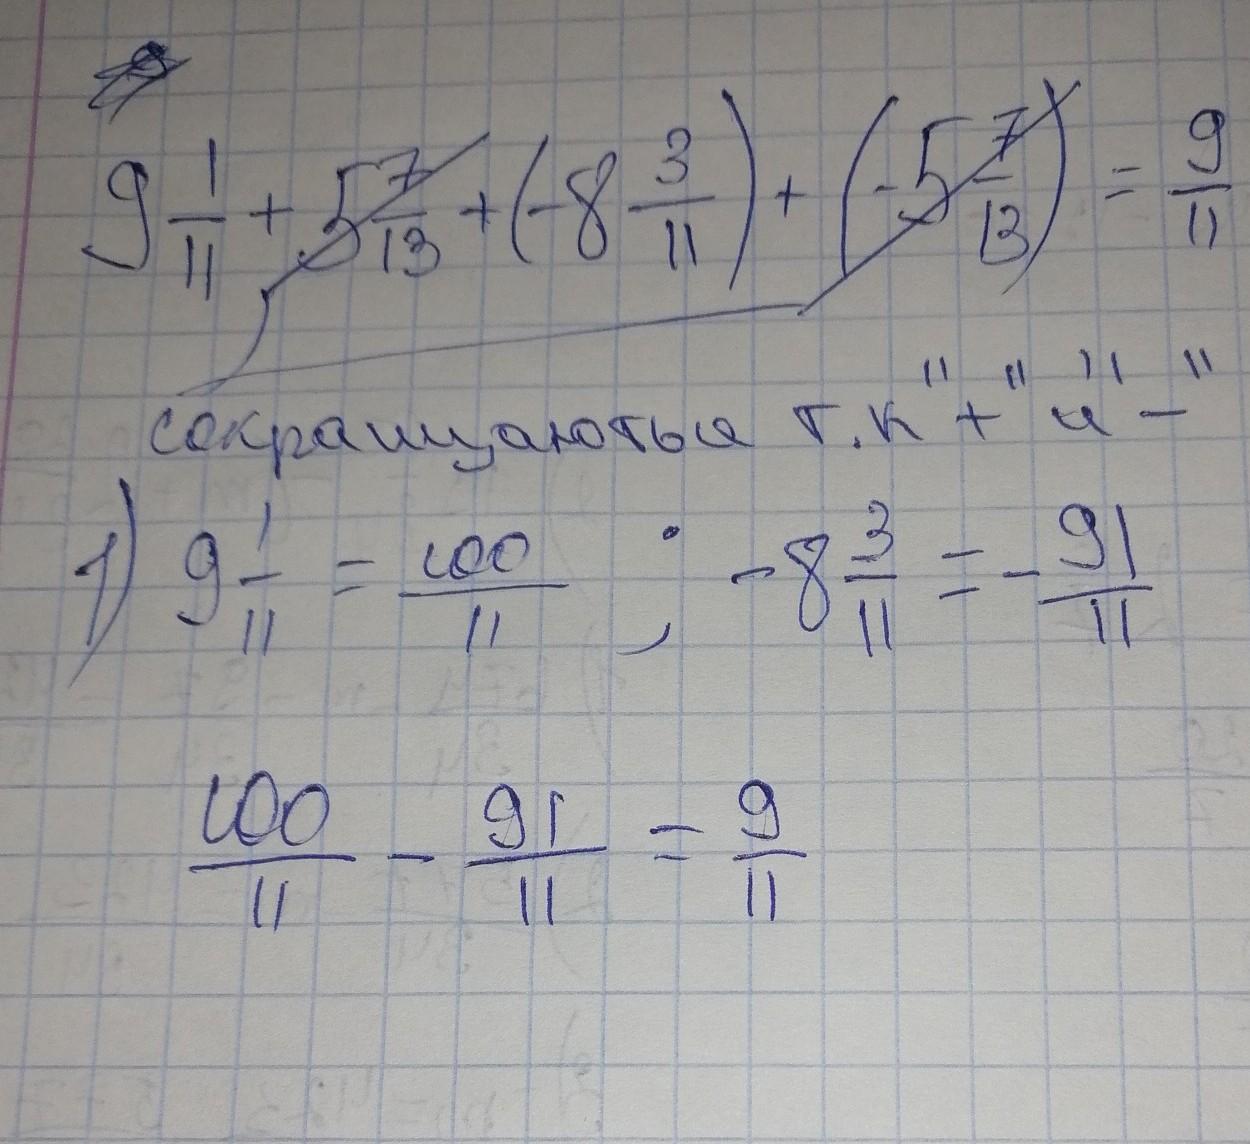 9 1/11 + 5 7/13 + (-8 3/11) + (-5 7/13) = 9/11
сокращаються т.к "+" и "-"
1) 9 1/11 = 100/11 ; -8 3/11 = - 91/11
100/11 - 91/11 = 9/11